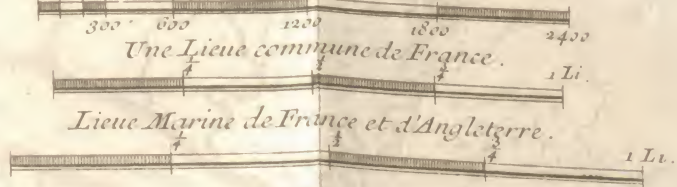 300 600 1200 1800 2400
Une Lieue commune de France.
1/4 1/2 3/4 1 Li.
Lieue Marine de France et d'Angleterre.
1/4 1/2 3/4 1 Li.